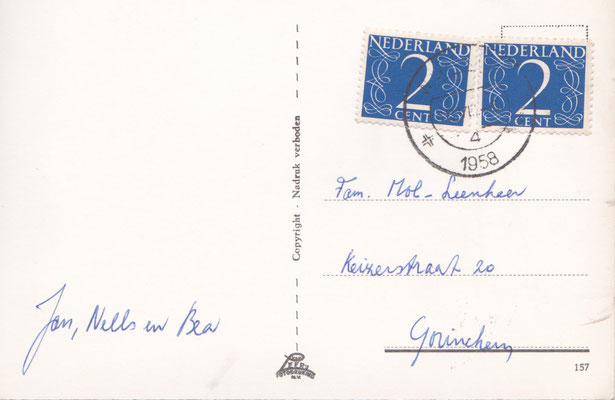 NEDERLAND
2
CENT
NEDERLAND
2
CENT
4
1958
Fam. Mol-Leenheer
Keizerstraat 20
Gorinchem
Jan, Nells en Bea
Copyright · Nadruk verboden
FOTODRUKKERIJ
N.V.
157